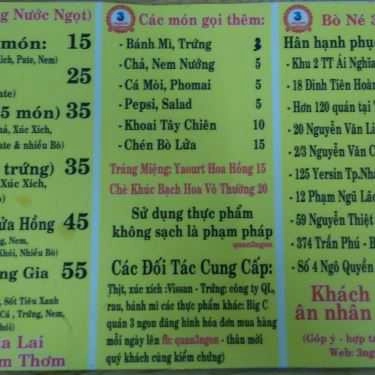 ng Nước Ngọt)
món: 15
ích, Pate, Nem)
35
5 món)
há, Xúc Xích,
ate & nhiều Bò)
trứng) 35
Xúc Xích,
ửa Hồng 45
g, Nem,
Khói, Nhiều Bò)
ng Gia 55
, Sốt Tiêu Xanh
Cá , Trứng, Nem,
a Lai
m Thơm
3
Các món gọi thêm:
- Bánh Mì, Trứng 3
- Chả, Nem Nướng 5
- Cá Mòi, Phomai 5
- Pepsi, Salad 5
- Khoai Tây Chiên 10
- Chén Bò Lửa 15
Tráng Miệng: Yaourt Hoa Hồng 15
Chè Khúc Bạch Hoa Vô Thường 20
Sử dụng thực phẩm
không sạch là phạm pháp
quan3ngon
Các Đối Tác Cung Cấp:
Thịt, xúc xích :Vissan - Trứng: công ty QL,
rau, bánh mì các thực phẩm khác: Big C
quán 3 ngon đăng hình hóa đơn mua hàng
mỗi ngày lên fb: quan3ngon - thân mời
quý khách cùng kiểm chứng)
3
Bò Né 3
Hân hạnh phục
- Khu 2 TT Ái Nghĩa
- 18 Đinh Tiên Hoàn
- Hơn 120 quán tại
- 20 Nguyễn Văn Li
- 2/3 Nguyễn Văn C
- 125 Yersin Tp.Nha
- 12 Phạm Ngũ Lão
- 59 Nguyễn Thiệt
- 374 Trần Phú - B
- Số 4 Ngô Quyền
Khách
ân nhân
(Góp ý - hợp t
Web: 3ng